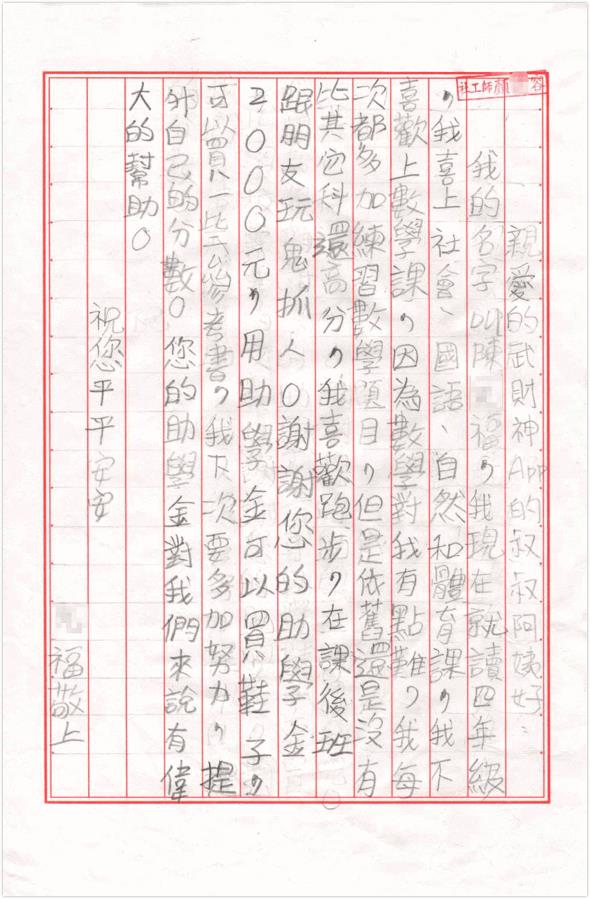 社工師顏容
親愛的武財神App的叔叔阿姨好：
我的名字叫陳福，我現在就讀四年級
，我喜上社會、國語、自然和體育課，我不
喜歡上數學課，因為數學對我有點難，我每
次都多加練習數學題目，但是依舊還是沒有
比其它科還高分，我喜歡跑步，在課後班
跟朋友玩鬼抓人。謝謝您的助學金
2000元，用助學金可以買鞋子，
可以買一些參考書，我下次要多加努力，提
升自己的分數。您的助學金對我們來說有偉
大的幫助。
祝您平平安安
福敬上